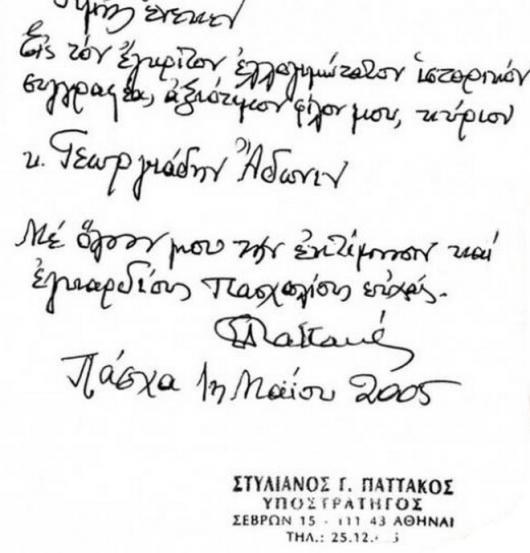 Τιμῆς ἕνεκεν
Εἰς τόν ἔγκριτον ἐλλογιμώτατον ἱστορικόν
συγγραφέα, ἀξιότιμον φίλον μου, κύριον
κ. Γεωργιάδην Ἄδωνιν
Μέ ὅλην μου τήν ἐκτίμησιν καί
ἐγκαρδίους Πασχαλίους εὐχάς.
Πάσχα 1η Μαΐου 2005
ΣΤΥΛΙΑΝΟΣ Γ. ΠΑΤΤΑΚΟΣ
ΥΠΟΣΤΡΑΤΗΓΟΣ
ΣΕΒΡΩΝ 15 - 111 43 ΑΘΗΝΑΙ
ΤΗΛ.: 25.12.